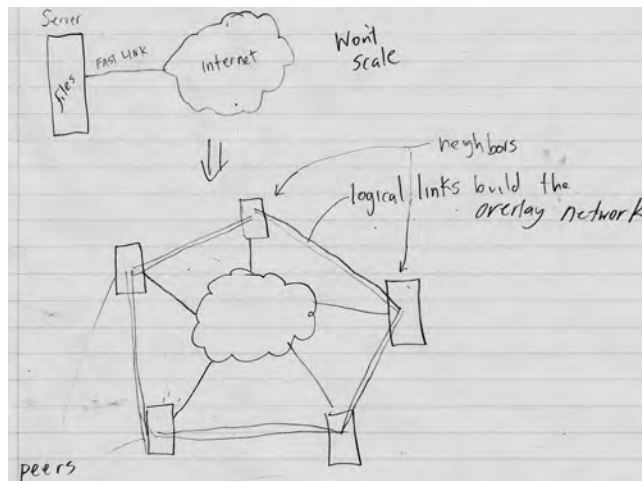 Server
files
FAST LINK
Internet
Won't
scale
neghbors
logical links build the
overlay network
peers